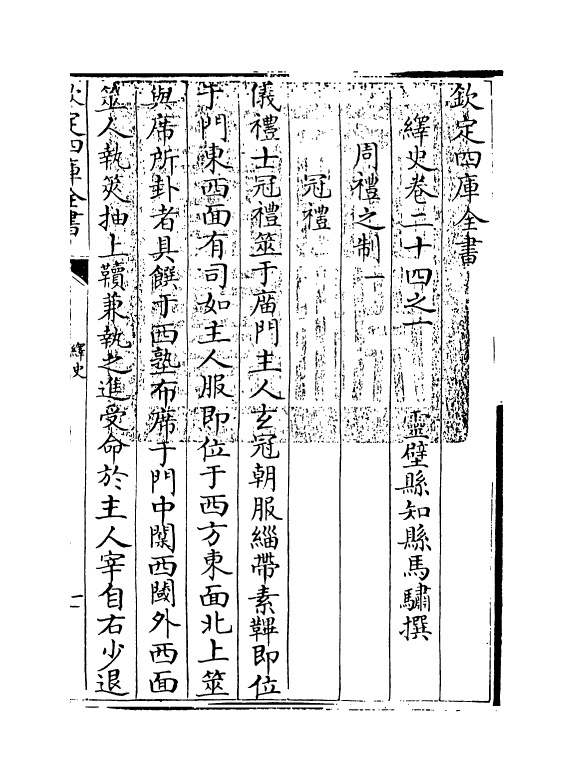 欽定四庫全書
繹史卷二十四之一
靈壁縣知縣馬驌撰
周禮之制一
冠禮
儀禮士冠禮筮于廟門主人玄冠朝服緇帶素韠即位
于門東西面有司如主人服即位于西方東面北上筮
與席所卦者具饌于西塾布席于門中闑西閾外西面
筮人執筴抽上韇兼執之進受命於主人宰自右少退
欽定四庫全書
繹史
一